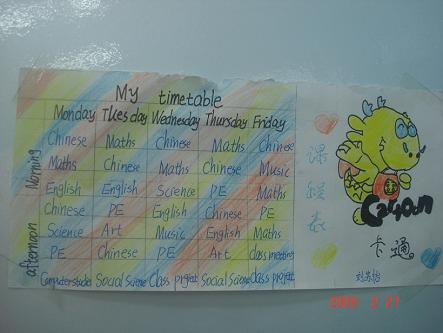 My timetable
Monday Tuesday Wednesday Thursday Friday
Morning
Chinese Maths Chinese Maths Chinese
Maths Chinese Maths Chinese Music
English English Science PE Maths
Chinese PE English Chinese PE
afternoon
Science Art Music English Maths
PE Chinese PE Art class meeting
Computer studies Social Science Class project Social Science Class project
课程表
卡通